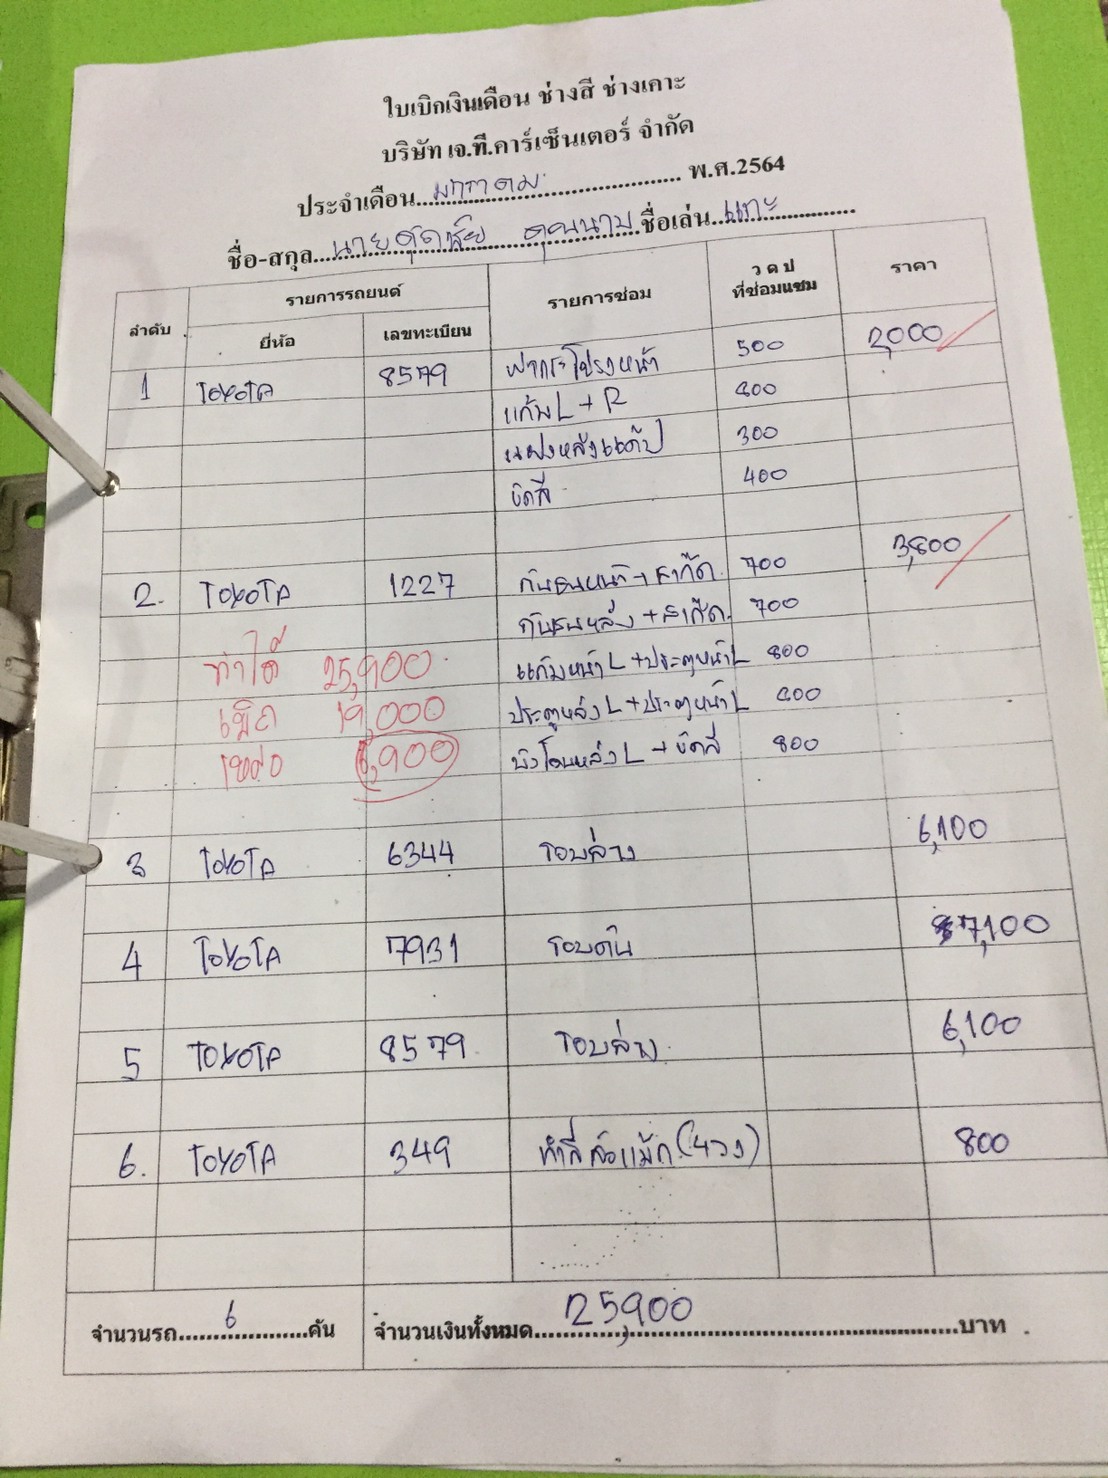 ใบเบิกเงินเดือน ช่างสี ช่างเคาะ
บริษัท เจ.ที.คาร์เซ็นเตอร์ จำกัด
ประจำเดือน....มกราคม.... พ.ศ.2564
ชื่อ-สกุล....นาย....ชื่อเล่น..แกะ....
ลำดับ รายการรถยนต์ รายการซ่อม ว ด ป ที่ซ่อมแซม ราคา
ยี่ห้อ เลขทะเบียน
1 TOYOTA 8579 ฝากระโปรงหน้า 500 2,000
แก้ม L + R 800
แผงหลังแค๊ป 300
ขัดสี 400
2. TOYOTA 1227 กันชนหน้า + สเกิ๊ต 700 3,800
กันชนหลัง + สเกิ๊ต 700
ทำได้ 25,900 แก้มหน้า L + ประตูหน้า L 800
เบิก 19,000 ประตูหลัง L + ประตูหน้า L 800
เหลือ 6,900 บังโคนหลัง L + ขัดสี 800
3 TOYOTA 6344 รอบล่าง 6,100
4 TOYOTA 7931 รอบคัน 7,100
5 TOYOTA 8579 รอบล่าง 6,100
6. TOYOTA 349 ทำสีล้อแม็ก (4วง) 800
จำนวนรถ....6....คัน จำนวนเงินทั้งหมด....25,900....บาท